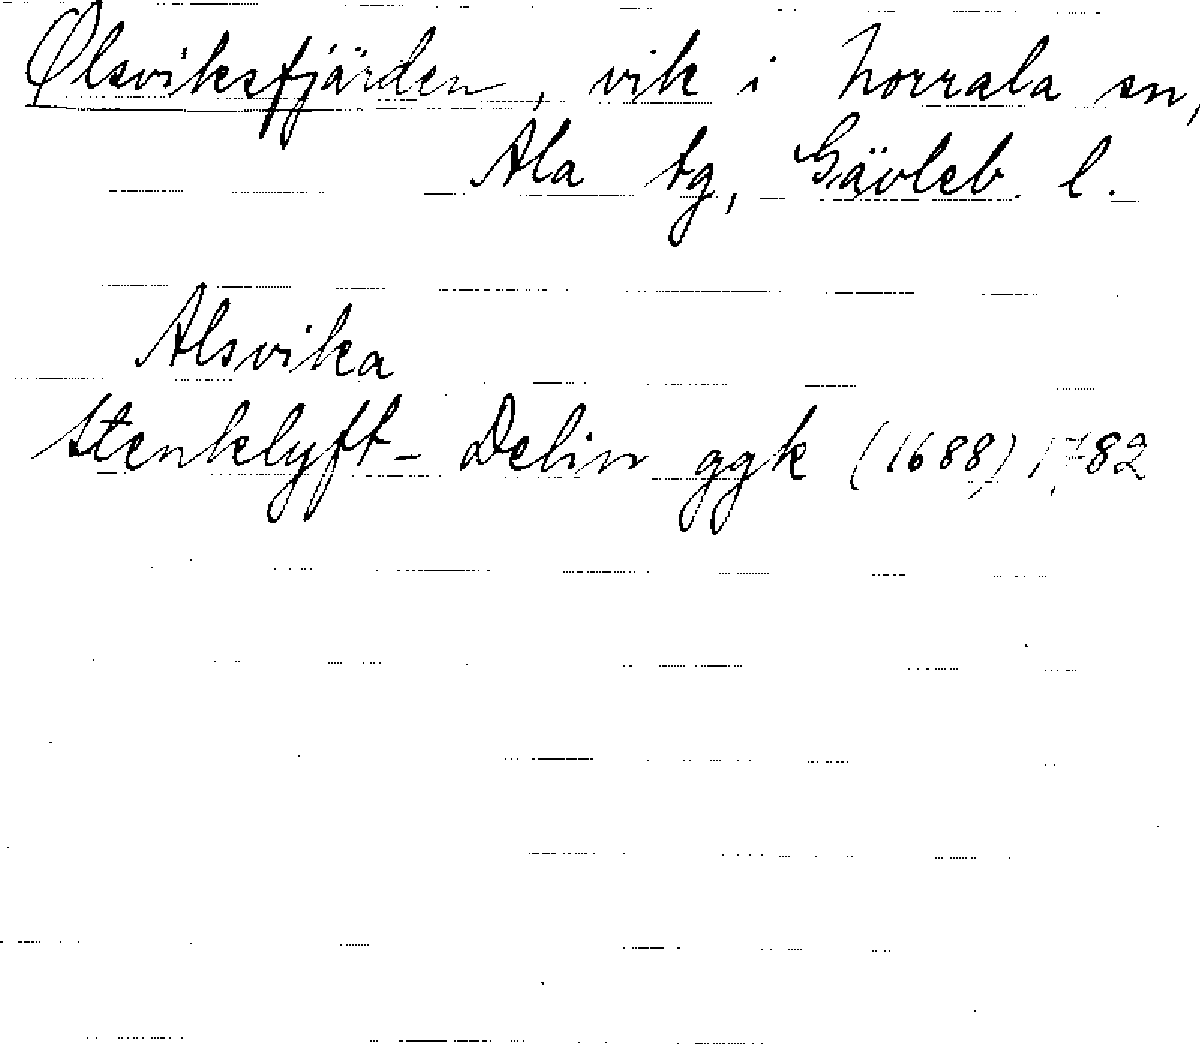 Ølsviksfjärden, vik i Norrala sn,
Ala tg, Gävleb. l.
Alsvika
Stenklyft-Delin ggk (1688) 1782